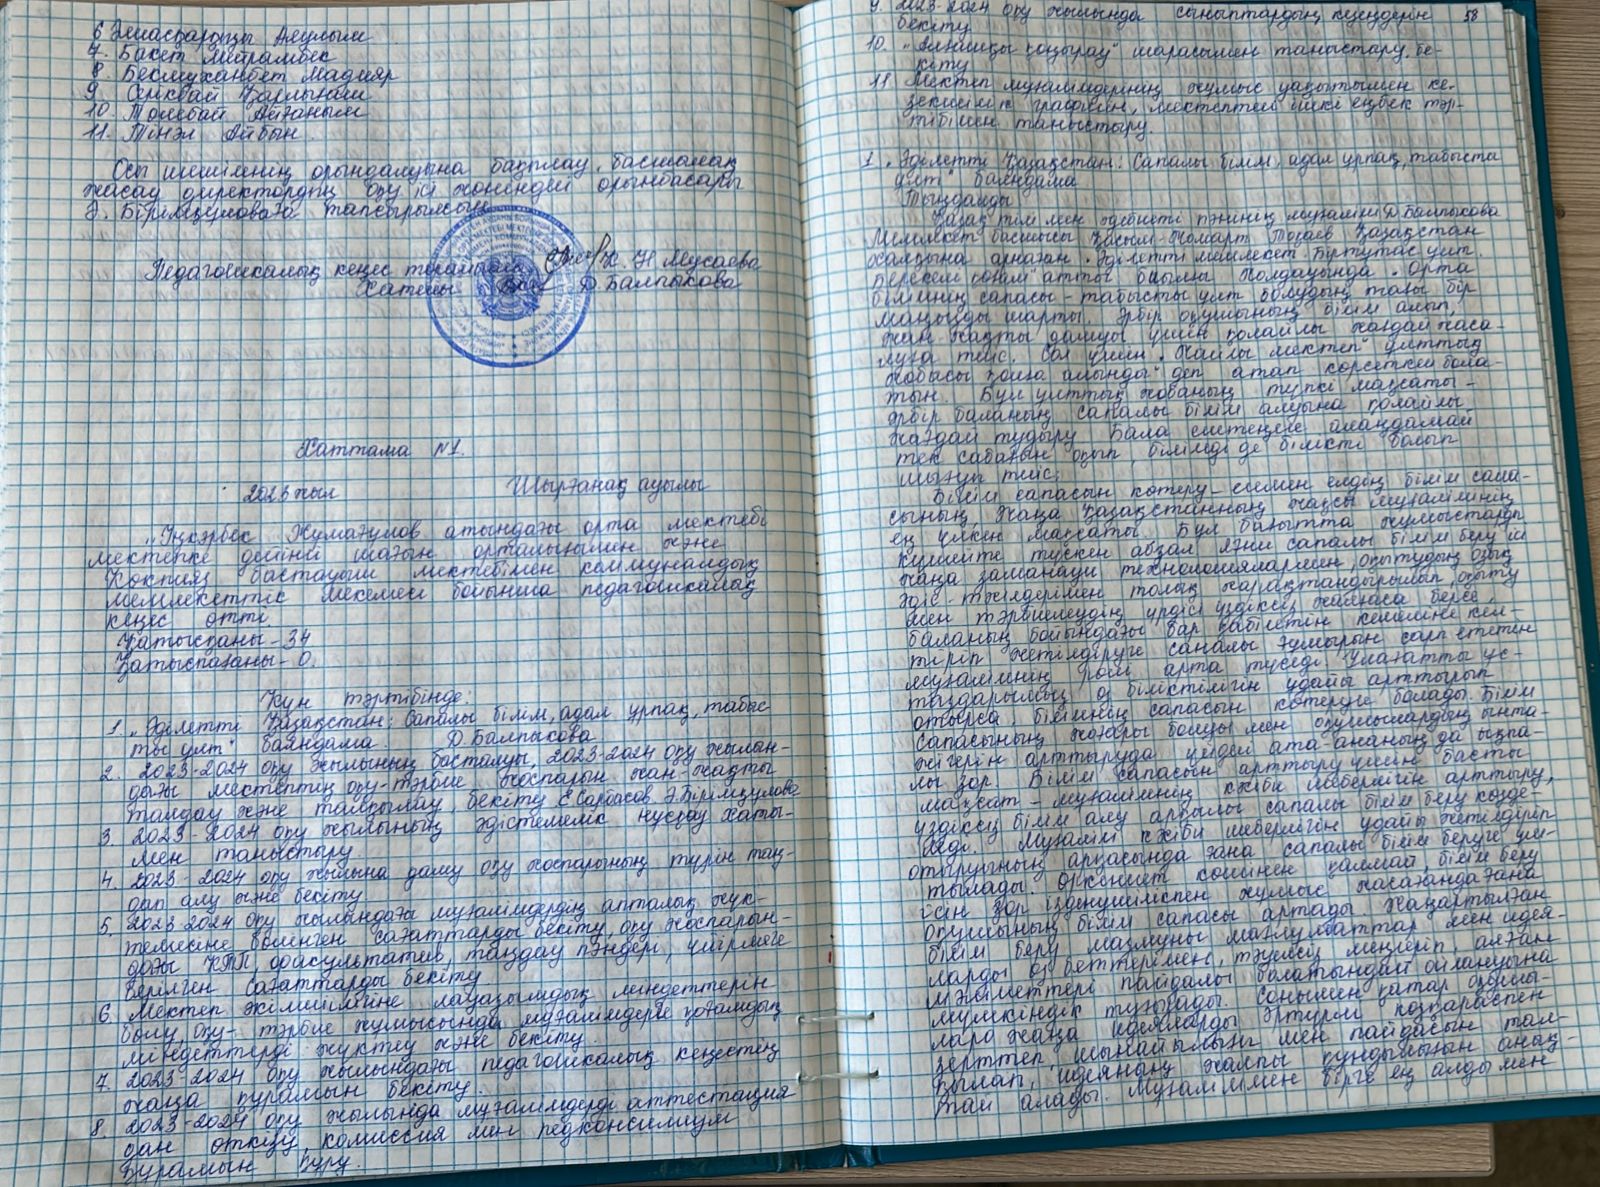 7. Бакет Мейрамбек
8. Бекмуханбет Мадияр
9. Сейсбай Қарлығаш
10. Төлебай Айғаным
11. Тінәл Айбын
Осы шешімнің орындалуына бақылау, басшылық
жасау директордың оқу ісі жөніндегі орынбасары
Ә. Бірімқұловаға тапсырылсын
Педагогикалық кеңес төрайымы Н Мусаева
Хатшы Д Балпыкова
Хаттама №1.
2023 жыл Шырғанақ ауылы
"Эңкәрбек Жұмағұлов атындағы орта мектебі
мектепке дейінгі шағын орталығымен және
Көкпияз бастауыш мектебімен коммуналдық
мемлекеттік мекемесі бойынша педагогикалық
кеңес өтті.
Қатысқаны - 34
Қатыспағаны - 0.
Күн тәртібінде:
1. "Әділетті Қазақстан: сапалы білім, адал ұрпақ, табыс-
ты ұлт" баяндама. Д. Балпыкова
2. 2023-2024 оқу жылының басталуы, 2023-2024 оқу жылын-
дағы мектептің оқу-тәрбие жоспарын жан-жақты
талдау және талқылау, бекіту Е Сарбасов, Ә. Бірімқұлова
3. 2023-2024 оқу жылының әдістемелік нұсқау хаты-
мен таныстыру.
4. 2023-2024 оқу жылына даму оқу жоспарының түрін таң-
дап алу және бекіту
5. 2023-2024 оқу жылындағы мұғалімдердің апталық жүк-
темесіне бөлінген сағаттарды бекіту, оқу жоспарын-
дағы ҚТП, факультатив, таңдау пәндері, үйірмеге
берілген сағаттарды бекіту
6. Мектеп әкімшілігіне лауазымдық міндеттерін
бөлу, оқу-тәрбие жұмысында мұғалімдерге қоғамдық
міндеттерді жүктеу және бекіту
7. 2023-2024 оқу жылындағы педагогикалық кеңестің
жаңа құрамын бекіту.
8. 2023-2024 оқу жылында мұғалімдерді аттестация
дан өткізу, комиссия мен педконсилиум
құрамын құру.
58
9. 2023-2024 оқу жылында сыныптардың кезеңдерін
бекіту
10. "Алғашқы қоңырау" шарасымен таныстыру. бе-
кіту
11. Мектеп мұғалімдерінің жұмыс уақытымен ке-
зекшілік графигін, мектептегі ішкі еңбек тәр-
тібімен таныстыру.
1. "Әділетті Қазақстан: Сапалы білім, адал ұрпақ, табысты
ұлт" баяндама
Тыңдалды
Қазақ тілі мен әдебиеті пәнінің мұғалімі Д Балпыкова
Мемлекет басшысы Қасым-Жомарт Тоқаев Қазақстан
халқына арнаған "Әділетті мемлекет. Біртұтас ұлт.
Берекелі қоғам" атты биылғы Жолдауында "Орта
білімнің сапасы - табысты ұлт болудың тағы бір
маңызды шарты. Әрбір оқушының білім алып,
жан-жақты дамуы үшін қолайлы жағдай жаса-
луға тиіс. Сол үшін "Жайлы мектеп" ұлттық
жобасы қолға алынды" деп атап көрсеткен бола-
тын. Бұл ұлттық жобаның түпкі мақсаты -
әрбір баланың сапалы білім алуына қолайлы
жағдай тудыру. Бала ештеңеге алаңдамай
тек сабағын оқып, білімді де білікті болып
шығуы тиіс.
Білім сапасын көтеру - есімен елдің білім сапа-
сының, Жаңа Қазақстанның жақсы мұғалімінің
ең үлкен мақсаты. Бұл бағытта жұмыстарды
күшейте түскен абзал. Яғни сапалы білім беру ісі
жаңа заманауи технологиялармен, оқытудың озық
әдіс-тәсілдерімен толық жарақтандырылып, оқыту
мен тәрбиелеудің үрдісі үздіксіз жалғаса берсе,
баланың бойындағы бар қабілетін кемеліне кел-
тіріп жетілдіруге саналы ғұмырын сарп ететін
мұғалімнің рөлі арта түседі. Ұлағатты ұс-
таздарымыз өз біліктілігін ұдайы арттырып
отырса, білімнің сапасын көтеруге болады. Білім
сапасының жоғары болуы мен оқушылардың ынта-
жігерін арттыруда үйдегі ата-ананың да ықпа-
лы зор. Білім сапасын арттыру үшін басты
мақсат - мұғалімнің кәсіби шеберлігін арттыру,
үздіксіз білім алу арқылы сапалы білім беру көзде-
леді. Мұғалім кәсіби шеберлігін ұдайы жетілдіріп
отыруының арқасында ғана сапалы білім беруге ұм-
тылады. Өркениет көшінен қалмай, білім беру
ісін зор ізденушілікпен жұмыс жасағанда ғана
оқушының білім сапасы артады. Жаңартылған
білім беру мазмұны мағлұматтар мен идея-
ларды өз беттерімен, тәуелсіз меңгеріп, алған
мәліметтері пайдалы болатындай ойлануына
мүмкіндік туғызады. Сонымен қатар оқушы-
лар жаңа идеяларды әртүрлі көзқараспен
зерттеп, шынайылығы мен пайдасын тал-
қылап, идеяның жалпы құндылығын анық-
тай алады. Мұғаліммен бірге ең алдымен